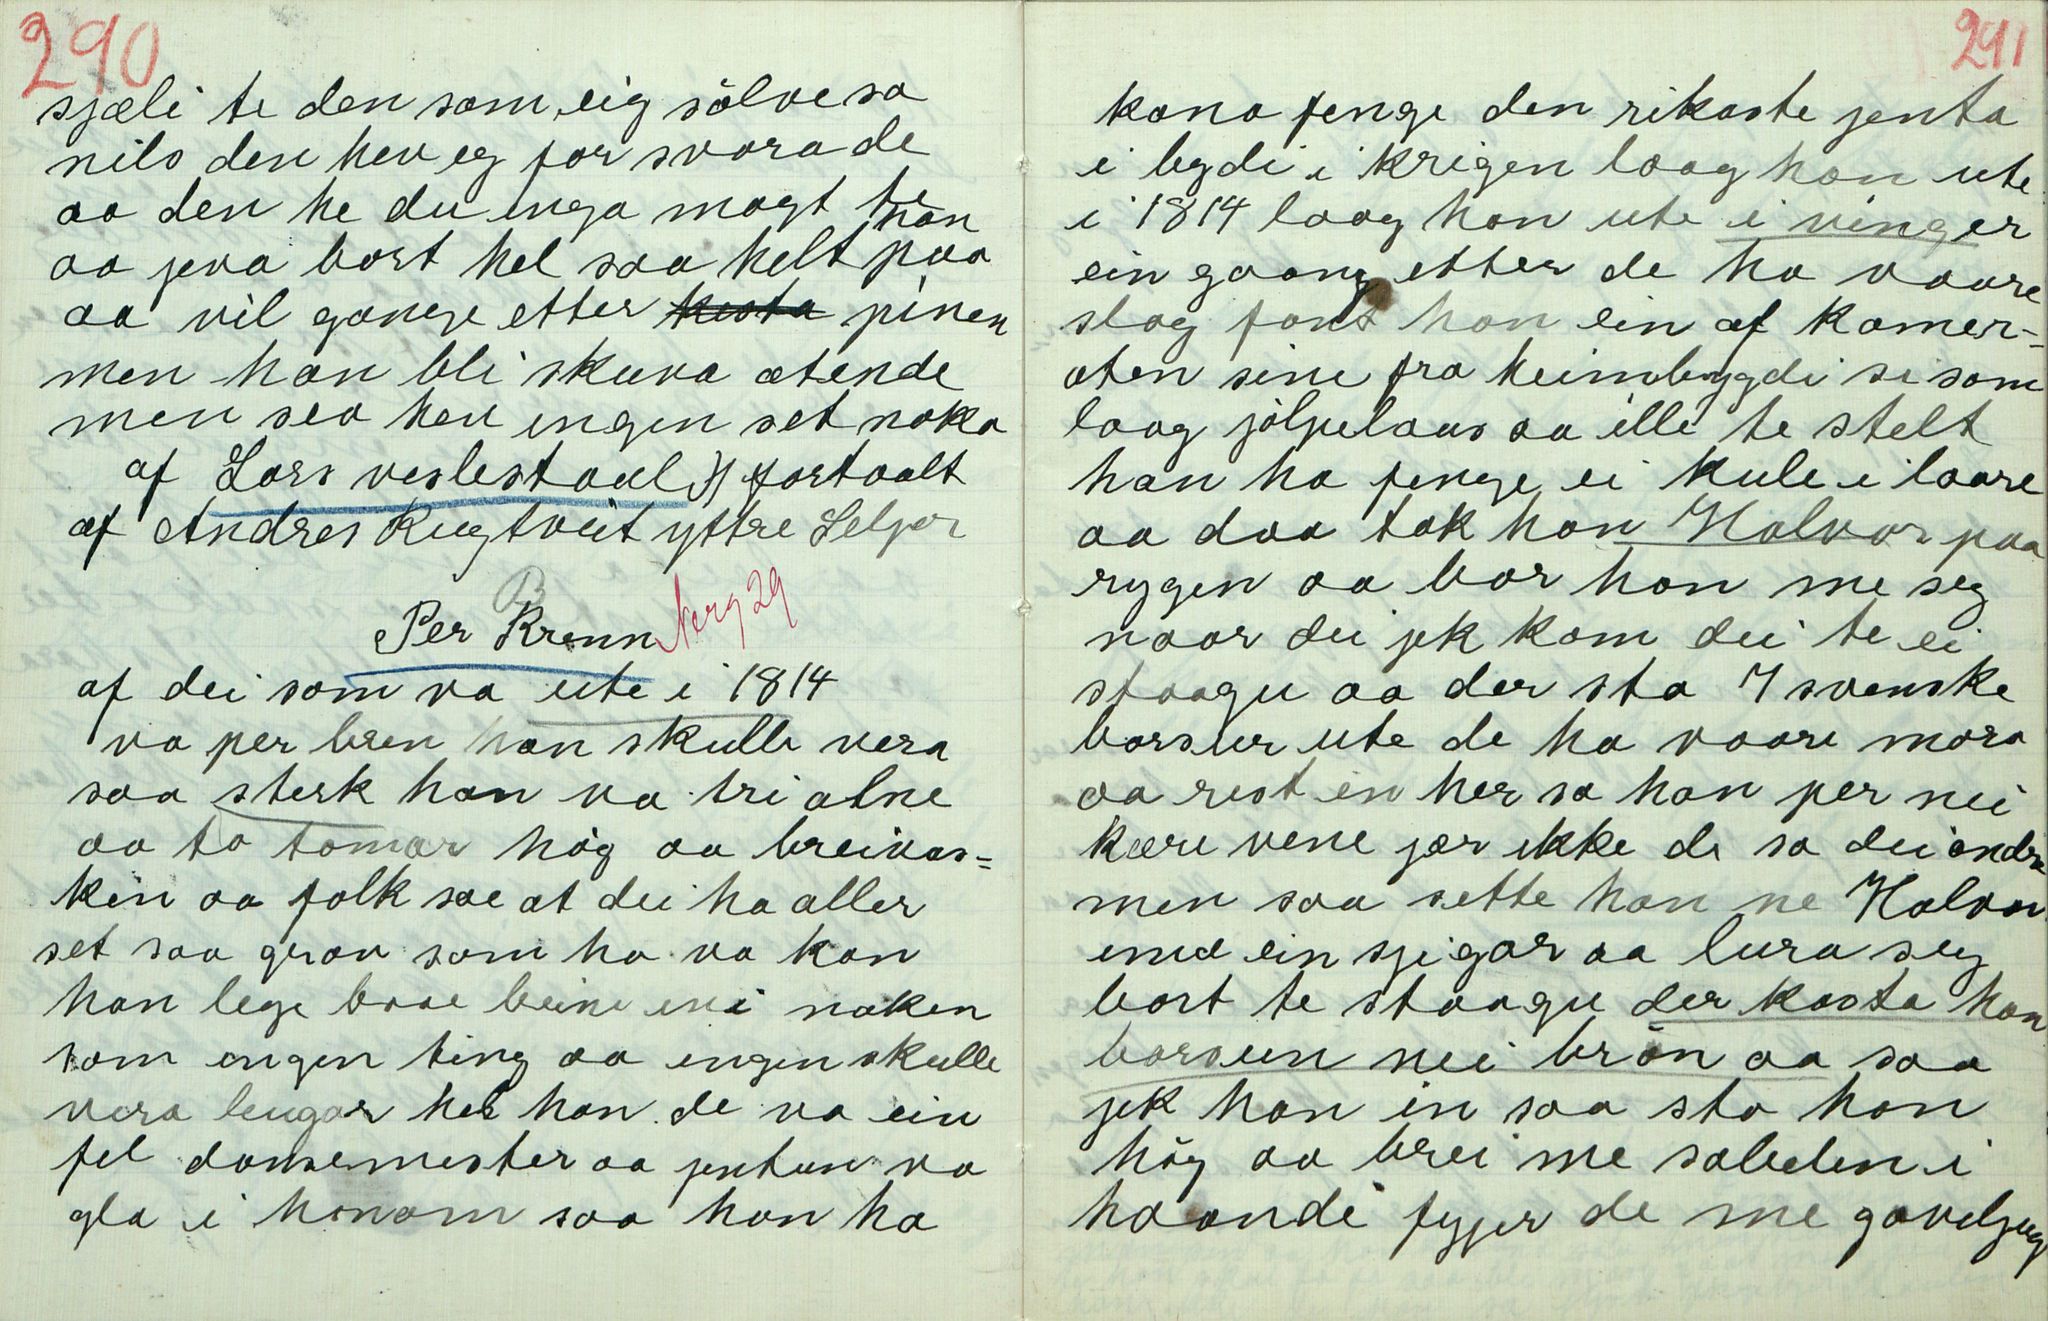 290
sjæli te den som eig sölve sa
nils den hev eg forsvora de
aa den he du inga magt te
han
aa jeva bort hel saa helt paa
aa vil gange etter pinen
men han bli skuva atende
men sea hev ingen set noka
af Lars veslestaul fortaalt
af Andres Rugtveit yttre Seljor
Per Brenn Norg 29
af dei som va ute i 1814
va per bren han skulle vera
saa sterk han va tri alne
aa to tomar hög aa breivas=
ken aa folk sae at dei ha aller
set saa grov som ha va kan
han lege baae beine ini naken
som ingen ting aa ingen skulle
vera lengar hel han de va ein
fel dansemester aa jentun va
gla i honom saa han ha
291
kana fenge den rikaste jenta
i bygdi i krigen laag han ute
i 1814 laag han ute i vinger
ein gaang etter de ha vaare
slag fant han ein af kamer=
aten sine fra heimbygdi si som
laag jölpelaus aa ille te stelt
han ha fenge ei kule i laare
aa daa tok han Halvor paa
rygen aa bar han me seg
naar dei jek kom dei te ei
staagu aa der sto 7 svenske
borsur ute de ha vaare mora
aa rest in her sa han per nei
kære vene jær ikke de sa dei andre
men saa sette han ne Halvor
imd ein sjigar aa lura seg
bort te staagu der kasta han
borsun nei brön aa saa
jek han in saa sto han
hög aa brei me sabelen i
haandi fyjer de me gaveljug